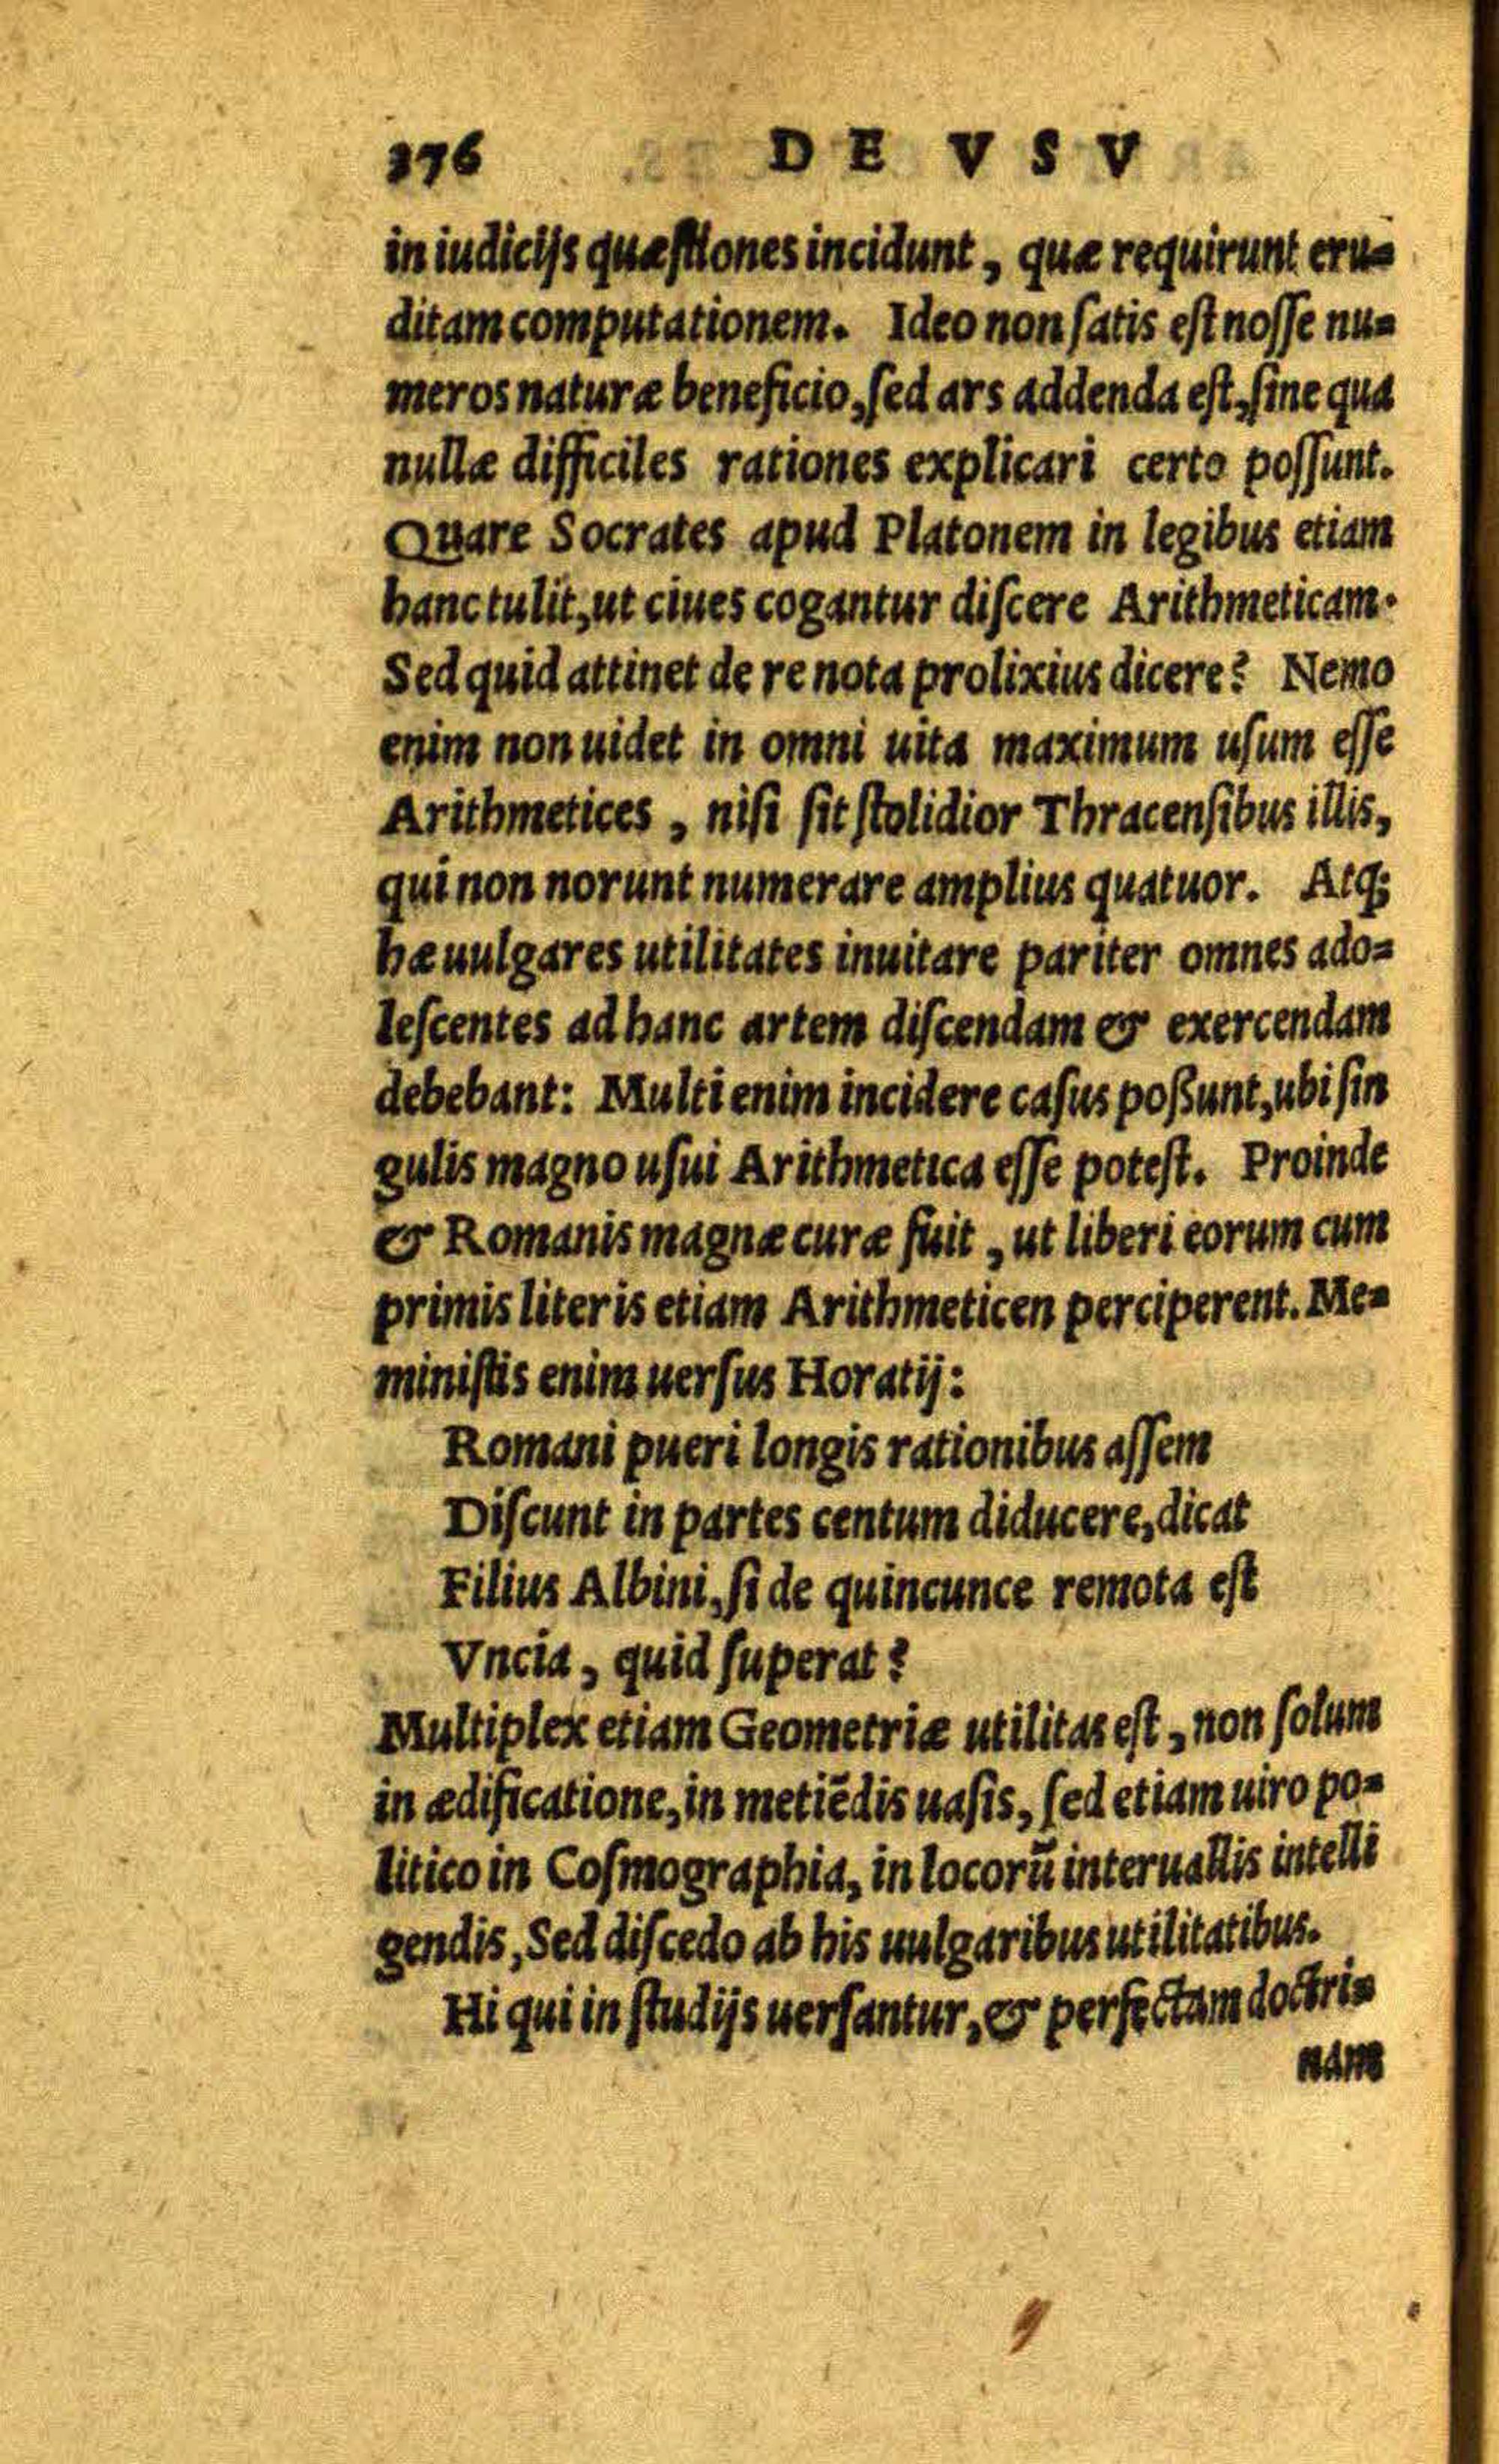 376 DE VSV
in iudicijs quæſtiones incidunt, quæ requirunt eru=
ditam computationem. Ideo non ſatis eſt noſſe nu=
meros naturæ beneficio, ſed ars addenda eſt, ſine qua
nullæ difficiles rationes explicari certo poſſunt.
Quare Socrates apud Platonem in legibus etiam
hanc tulit, ut ciues cogantur diſcere Arithmeticam.
Sed quid attinet de re nota prolixius dicere? Nemo
enim non uidet in omni uita maximum uſum eſſe
Arithmetices, niſi ſit ſtolidior Thracenſibus illis,
qui non norunt numerare amplius quatuor. Atq;
hæ uulgares utilitates inuitare pariter omnes ado=
leſcentes ad hanc artem diſcendam & exercendam
debebant: Multi enim incidere caſus poßunt, ubi ſin
gulis magno uſui Arithmetica eſſe poteſt. Proinde
& Romanis magnæ curæ fuit, ut liberi eorum cum
primis literis etiam Arithmeticen perciperent. Me=
miniſtis enim uerſus Horatij:
Romani pueri longis rationibus aſſem
Diſcunt in partes centum diducere, dicat
Filius Albini, ſi de quincunce remota eſt
Vncia, quid ſuperat?
Multiplex etiam Geometriæ utilitas eſt, non ſolum
in ædificatione, in metiẽdis uaſis, ſed etiam uiro po=
litico in Coſmographia, in locorũ interuallis intelli
gendis, Sed diſcedo ab his uulgaribus utilitatibus.
Hi qui in ſtudijs uerſantur, & perfectam doctri=
nam